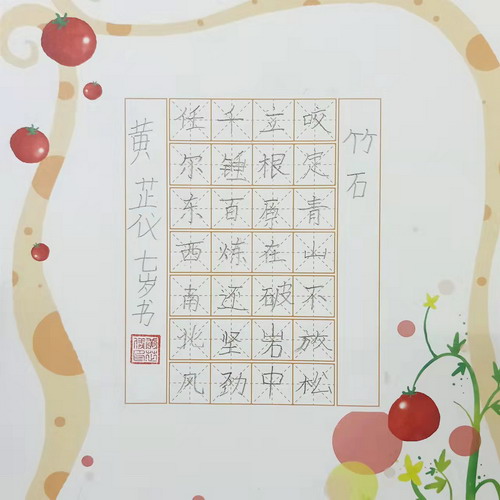 竹石
咬定青山不放松
立根原在破岩中
千锤百炼还坚劲
任尔东西南北风
黄芷仪七岁书